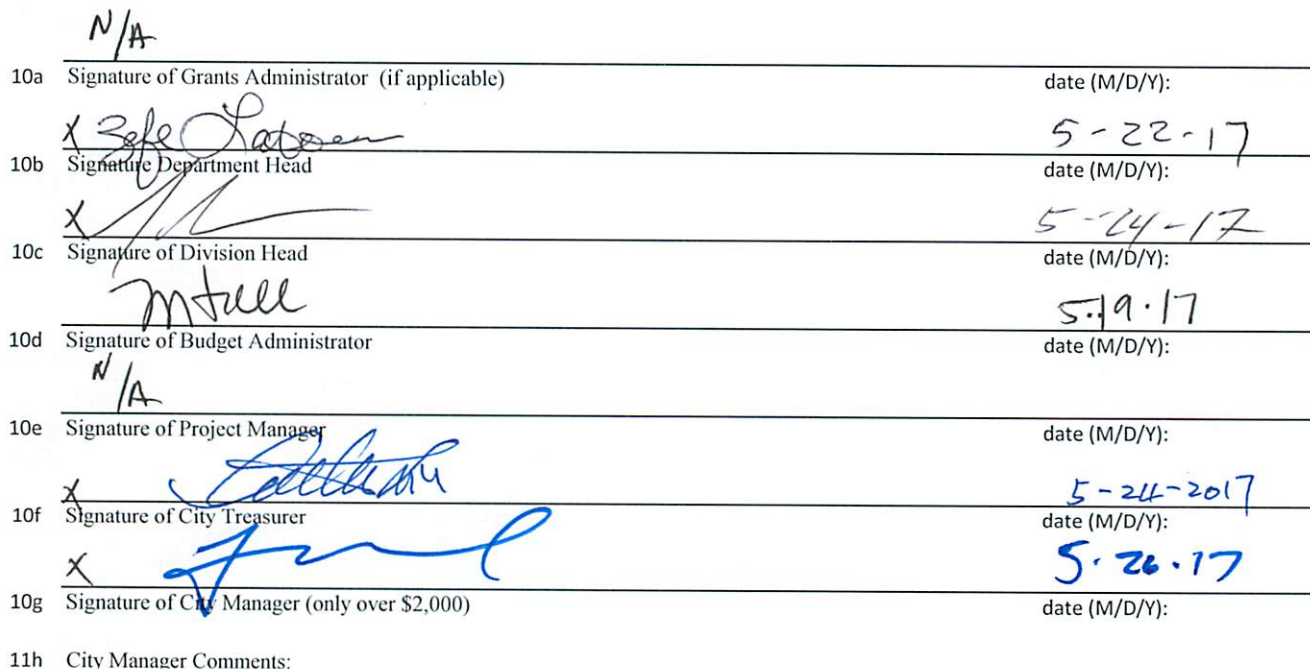 N/A
10a Signature of Grants Administrator (if applicable) date (M/D/Y):
X 5-22-17
10b Signature Department Head date (M/D/Y):
X 5-24-17
10c Signature of Division Head date (M/D/Y):
5.19.17
10d Signature of Budget Administrator date (M/D/Y):
N/A
10e Signature of Project Manager date (M/D/Y):
X 5-24-2017
10f Signature of City Treasurer date (M/D/Y):
X 5.26.17
10g Signature of City Manager (only over $2,000) date (M/D/Y):
11h City Manager Comments: